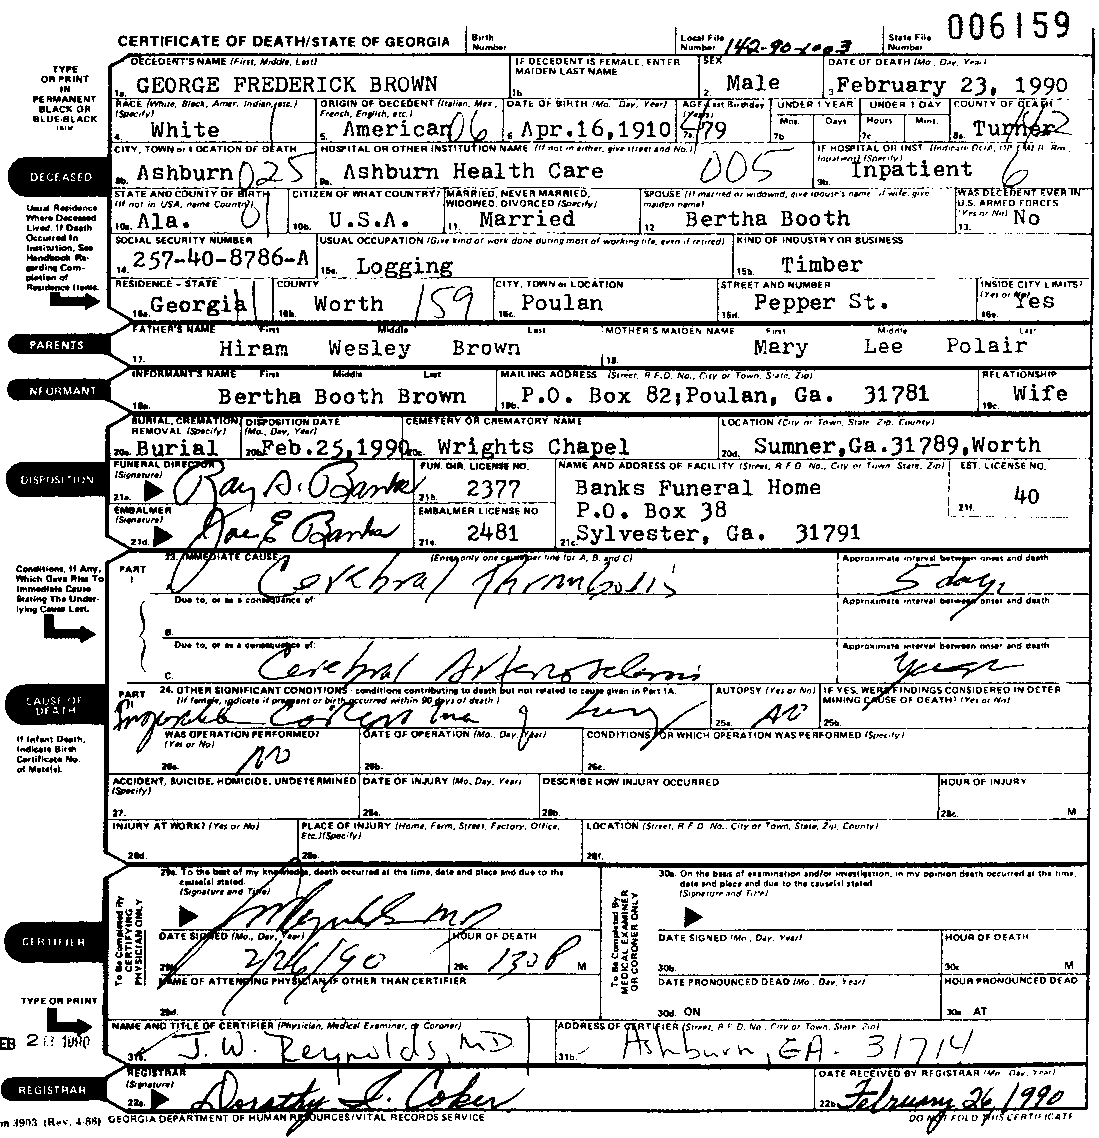 006159
CERTIFICATE OF DEATH/STATE OF GEORGIA Birth Number Local File Number 142-90-1003 State File Number
TYPE OR PRINT IN PERMANENT BLACK OR BLUE-BLACK INK
DECEDENT'S NAME (First, Middle, Last) IF DECEDENT IS FEMALE, ENTER MAIDEN LAST NAME SEX DATE OF DEATH (Mo., Day, Year)
1a. GEORGE FREDERICK BROWN 1b 2. Male 3 February 23, 1990
RACE (White, Black, Amer. Indian, etc.) (Specify) ORIGIN OF DECEDENT (Italian, Mex., French, English, etc.) DATE OF BIRTH (Mo., Day, Year) AGE Last Birthday (Years) UNDER 1 YEAR UNDER 1 DAY COUNTY OF DEATH
4. White 1 5. American 06 6 Apr.16,1910 7a 79 7b Mos. Days 7c Hours Mins. 8a Turner 142
DECEASED
CITY, TOWN or LOCATION OF DEATH HOSPITAL OR OTHER INSTITUTION NAME (If not in either, give street and No.) IF HOSPITAL OR INST. (Indicate DOA, OP/EM R. Rm., Inpatient) (Specify)
8b. Ashburn 025 9a. Ashburn Health Care 005 9b. Inpatient 6
Usual Residence Where Deceased Lived. If Death Occurred In Institution, See Handbook Regarding Completion of Residence Items.
STATE AND COUNTY OF BIRTH (If not in USA, name Country) CITIZEN OF WHAT COUNTRY? MARRIED, NEVER MARRIED, WIDOWED, DIVORCED (Specify) SPOUSE (If married or widowed, give spouse's name, if wife, give maiden name) WAS DECEDENT EVER IN U.S. ARMED FORCES (Yes or No)
10a. Ala. 01 10b. U.S.A. 11. Married 12 Bertha Booth 13. No
SOCIAL SECURITY NUMBER USUAL OCCUPATION (Give kind of work done during most of working life, even if retired) KIND OF INDUSTRY OR BUSINESS
14. 257-40-8786-A 15a. Logging 15b. Timber
RESIDENCE - STATE COUNTY CITY, TOWN or LOCATION STREET AND NUMBER INSIDE CITY LIMITS? (Yes or No)
16a. Georgia 16b. Worth 159 16c. Poulan 16d. Pepper St. 16e. Yes
PARENTS
FATHER'S NAME First Middle Last MOTHER'S MAIDEN NAME First Middle Last
17. Hiram Wesley Brown 18. Mary Lee Polair
INFORMANT
INFORMANT'S NAME First Middle Last MAILING ADDRESS (Street, R.F.D. No., City or Town, State, Zip) RELATIONSHIP
19a. Bertha Booth Brown 19b. P.O. Box 82;Poulan, Ga. 31781 19c. Wife
BURIAL, CREMATION, REMOVAL (Specify) DISPOSITION DATE (Mo., Day, Year) CEMETERY OR CREMATORY NAME LOCATION (City or Town, State, Zip, County)
20a. Burial 20b Feb.25,1990 20c. Wrights Chapel 20d. Sumner,Ga.31789,Worth
DISPOSITION
FUNERAL DIRECTOR (Signature) FUN. DIR. LICENSE NO. NAME AND ADDRESS OF FACILITY (Street, R.F.D. No., City or Town, State, Zip) EST. LICENSE NO.
21a. Ray A. Banks 21b. 2377 Banks Funeral Home 21f. 40
P.O. Box 38
EMBALMER (Signature) EMBALMER LICENSE NO
21d. Joe E Banks 21e. 2481 21c. Sylvester, Ga. 31791
Conditions, If Any, Which Gave Rise To Immediate Cause Stating The Underlying Cause Last.
PART I 23. IMMEDIATE CAUSE (Enter only one cause per line for A, B, and C) Approximate interval between onset and death
Cerebral Thrombosis 5 days
Due to, or as a consequence of: Approximate interval between onset and death
B.
Due to, or as a consequence of: Approximate interval between onset and death
C. Cerebral Arteriosclerosis years
CAUSE OF DEATH
PART 24. OTHER SIGNIFICANT CONDITIONS - conditions contributing to death but not related to cause given in Part 1A. (If female, indicate if present or birth occurred within 90 days of death) AUTOPSY (Yes or No) IF YES, WERE FINDINGS CONSIDERED IN DETERMINING CAUSE OF DEATH? (Yes or No)
of lung 25a. NO 25b.
If Infant Death, Indicate Birth Certificate No. of Mate(s).
WAS OPERATION PERFORMED? (Yes or No) DATE OF OPERATION (Mo., Day, Year) CONDITIONS FOR WHICH OPERATION WAS PERFORMED (Specify)
26a. NO 26b. 26c.
ACCIDENT, SUICIDE, HOMICIDE, UNDETERMINED (Specify) DATE OF INJURY (Mo., Day, Year) DESCRIBE HOW INJURY OCCURRED HOUR OF INJURY
27. 28a. 28b. 28c. M
INJURY AT WORK? (Yes or No) PLACE OF INJURY (Home, Farm, Street, Factory, Office, Etc.)(Specify) LOCATION (Street, R.F.D. No., City or Town, State, Zip, County)
28d. 28e. 28f.
CERTIFIER
To Be Completed By CERTIFYING PHYSICIAN ONLY
29a. To the best of my knowledge, death occurred at the time, date and place and due to the cause(s) stated. (Signature and Title)
JW Reynolds MD
DATE SIGNED (Mo., Day, Year) HOUR OF DEATH
29b 2/26/90 29c 130 P M
NAME OF ATTENDING PHYSICIAN IF OTHER THAN CERTIFIER
29d.
To Be Completed By MEDICAL EXAMINER OR CORONER ONLY
30a. On the basis of examination and/or investigation, in my opinion death occurred at the time, date and place and due to the cause(s) stated (Signature and Title)
DATE SIGNED (Mo., Day, Year) HOUR OF DEATH
30b. 30c M
DATE PRONOUNCED DEAD (Mo., Day, Year) HOUR PRONOUNCED DEAD
30d. ON 30e AT
TYPE OR PRINT
NAME AND TITLE OF CERTIFIER (Physician, Medical Examiner, or Coroner) ADDRESS OF CERTIFIER (Street, R.F.D. No., City or Town, State, Zip)
31a. J.W. Reynolds, MD 31b. Ashburn, GA. 31714
REGISTRAR
REGISTRAR (Signature) DATE RECEIVED BY REGISTRAR (Mo., Day, Year)
22a. Dorothy I. Coker 22b February 26, 1990
3903 (Rev. 4-86) GEORGIA DEPARTMENT OF HUMAN RESOURCES/VITAL RECORDS SERVICE DO NOT FOLD THIS CERTIFICATE